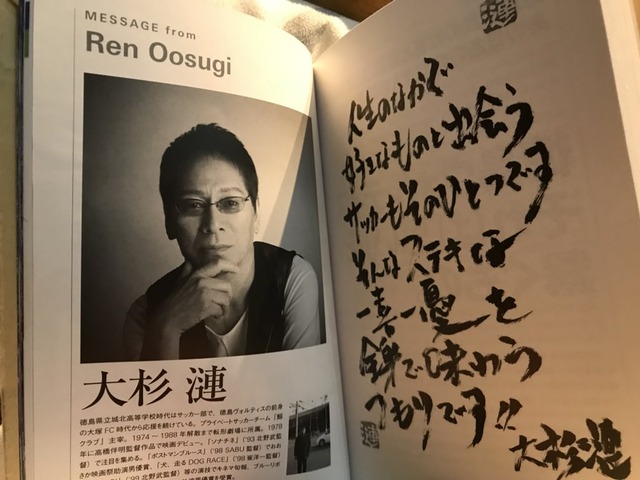 MESSAGE from
Ren Oosugi
大杉 漣
徳島県立城北高等学校時代はサッカー部で、徳島ヴォルティスの前身
の大塚FC時代から応援を続けている。プライベートサッカーチーム「鰯
クラブ」主宰。1974ー1988年解散まで転形劇場に所属。1978
年に高橋伴明監督作品で映画デビュー。「ソナチネ」('93 北野武監
督)で注目を集める。「ポストマンブルース」('98 SABU監督)でおお
さか映画祭助演男優賞、「犬、走るDOG RACE」('98 崔洋一監督)
('99 北野武監督)等の演技でキネマ旬報、ブルーリボ
人生のなかで
好きなものと出会う
サッカーもそのひとつです
そんなステキな
一喜一憂を
全身で味わう
つもりです!!
大杉漣